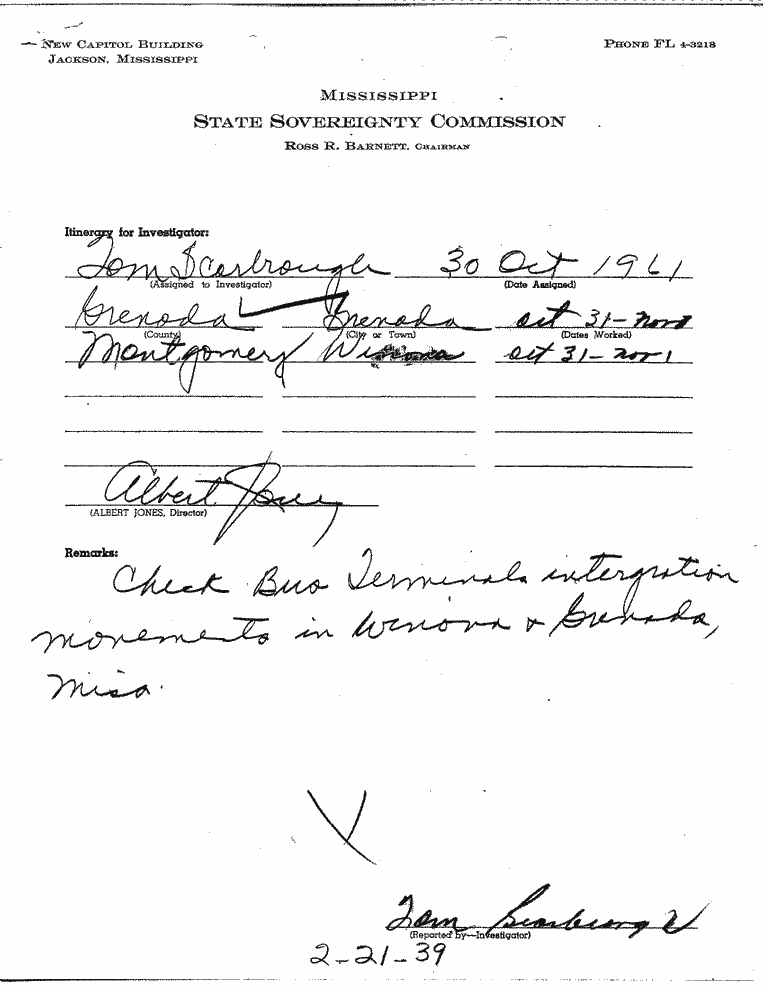 NEW CAPITOL BUILDING
JACKSON, MISSISSIPPI
PHONE FL 4-3218
MISSISSIPPI
STATE SOVEREIGNTY COMMISSION
ROSS R. BARNETT, CHAIRMAN
Itinerary for Investigator:
Tom Scarbrough 30 Oct 1961
(Assigned to Investigator) (Date Assigned)
Grenada Grenada oct 31 - Nov 1
(County) (City or Town) (Dates Worked)
Montgomery Winona oct 31 - nov 1
Albert Jones
(ALBERT JONES, Director)
Remarks:
Check Bus Terminals intergration
movements in Winona & Grenada,
Miss.
Tom Scarbrough
(Reported by—Investigator)
2-21-39